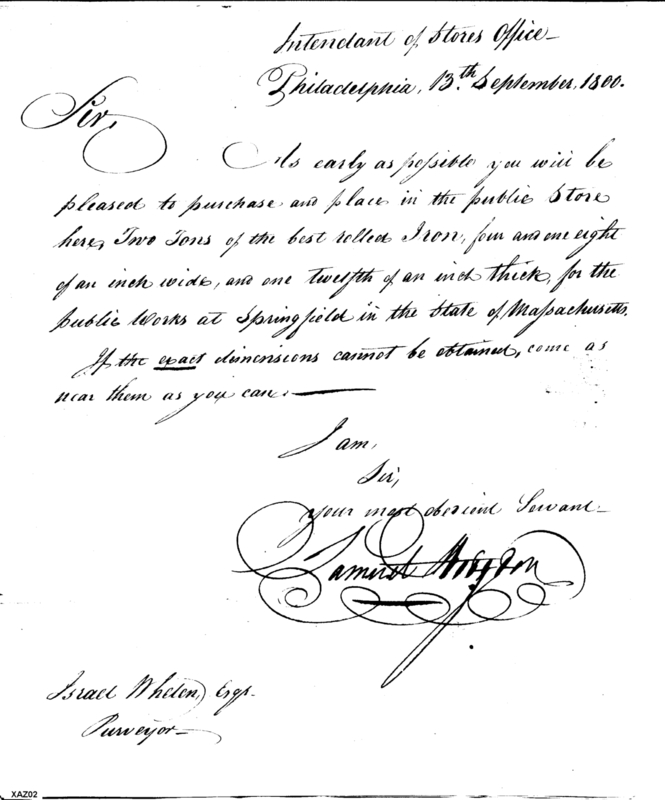 Intendant of Stores Office
Philadelphia, 13th September, 1800.
Sir,
As early as possible you will be
pleased to purchase and place in the public Store
here, Two Tons of the best rolled Iron, four and one eight
of an inch wide, and one twelfth of an inch thick, for the
public Works at Springfield in the State of Massachusetts.
If the exact dimensions cannot be obtained, come as
near them as you can.
I am,
Sir,
your most obedient Servant
Samuel Hodgdon
Israel Whelen, Esqr.
Purveyor
XAZ02